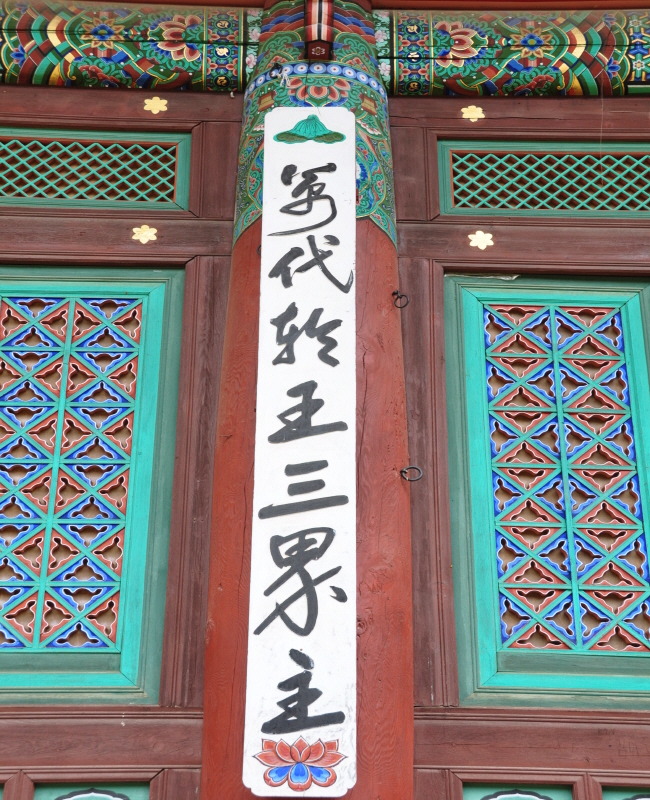 萬代輪王三界主